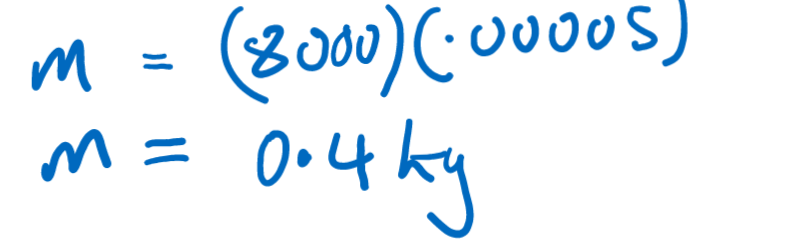 m = (8000)(.00005)
m = 0.4 kg